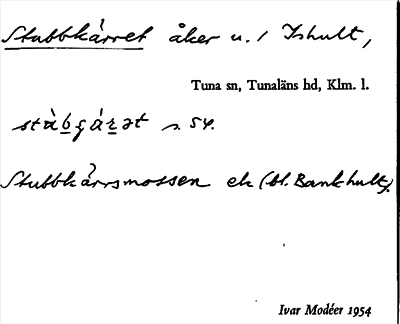 Stubbkärret åker u. 1 Ishult,
Tuna sn, Tunaläns hd, Klm. l.
s. 54.
Stubbkärrsmossen ek (bl. Bankhult).
Ivar Modéer 1954